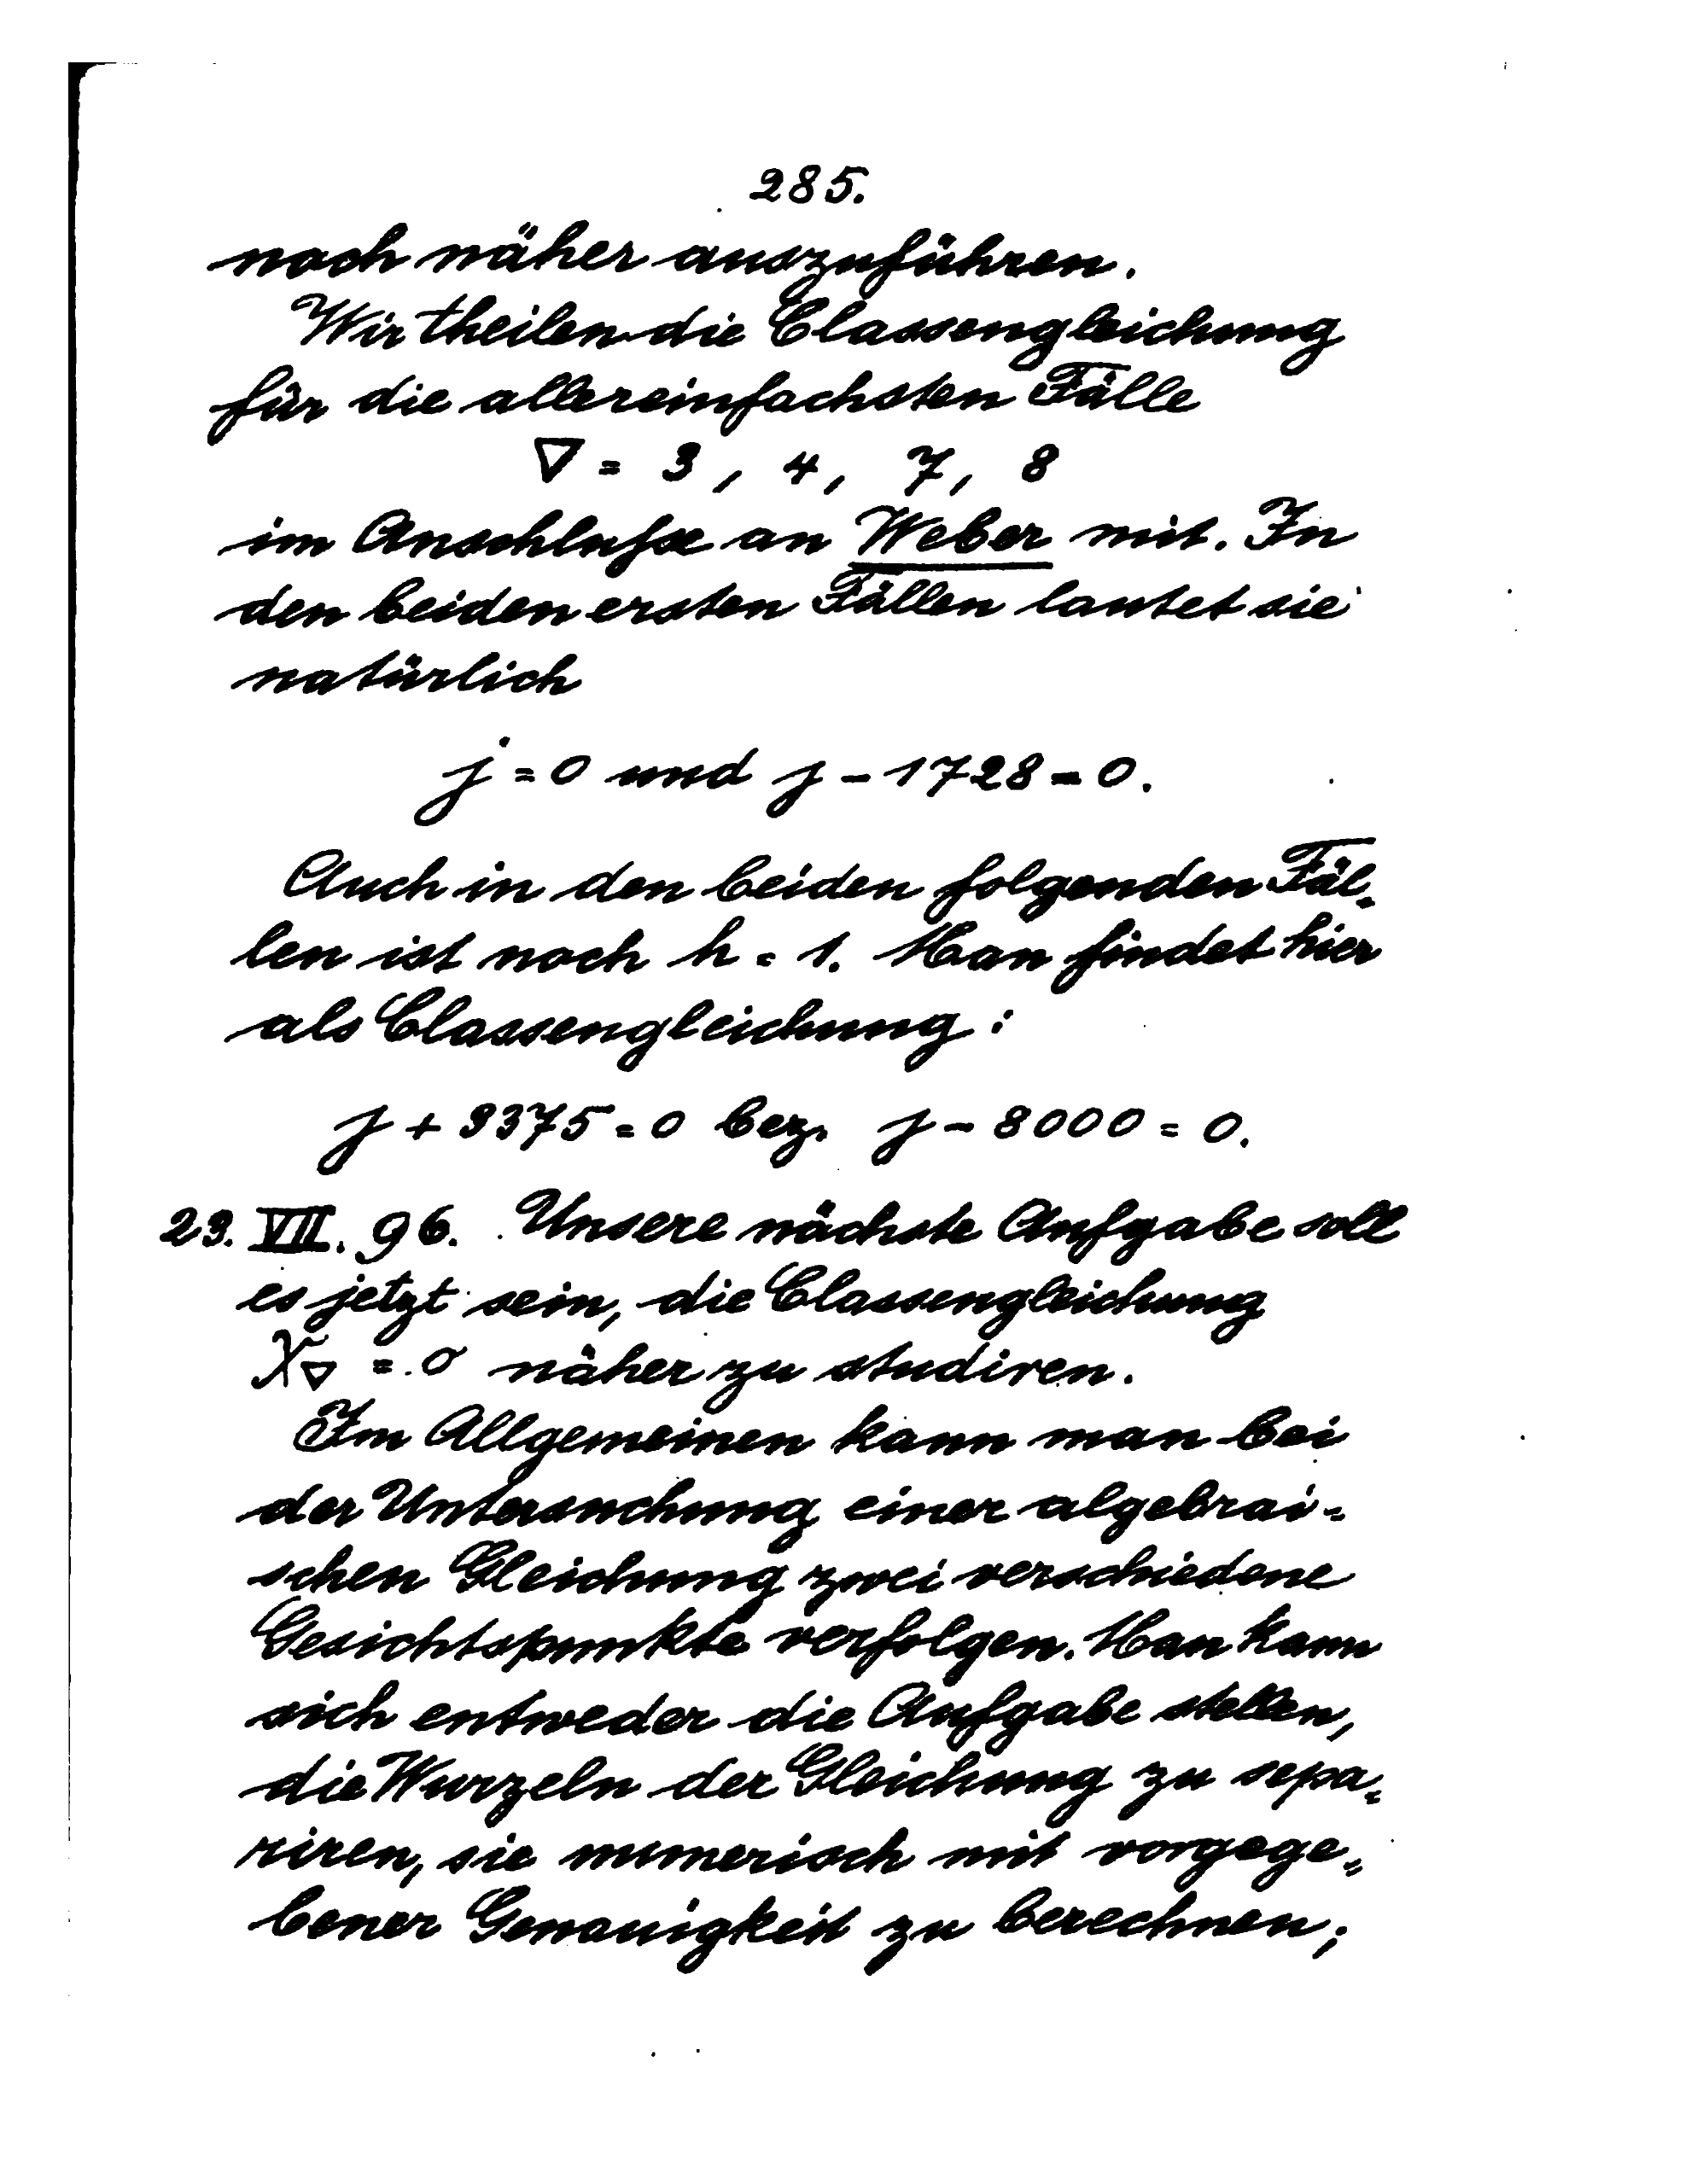 285.
noch näher auszuführen.
Wir theilen die Classengleichung
für die allereinfachsten Fälle
∇ = 3, 4, 7, 8
im Anschluſse an Weber mit. In
den beiden ersten Fällen lautet sie
natürlich
j = 0 und j - 1728 = 0.
Auch in den beiden folgenden Fäl-
len ist noch h = 1. Man findet hier
als Classengleichung:
j + 3375 = 0 bez. j - 8000 = 0.
23. VII. 96. Unsere nächste Aufgabe soll
es jetzt sein, die Classengleichung
X∇ = 0 näher zu studiren.
Im Allgemeinen kann man bei
der Untersuchung einer algebrai-
schen Gleichung zwei verschiedene
Gesichtspunkte verfolgen. Man kann
sich entweder die Aufgabe stellen,
die Wurzeln der Gleichung zu sepa-
riren, sie numerisch mit vorgege-
bener Genauigkeit zu berechnen;